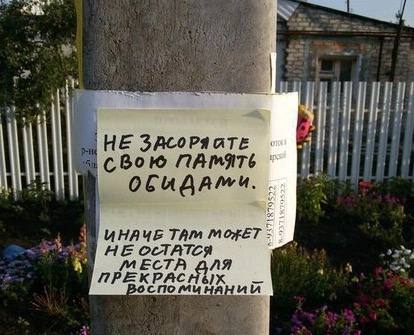 НЕ ЗАСОРЯЙТЕ
СВОЮ ПАМЯТЬ
ОБИДАМИ.
ИНАЧЕ ТАМ МОЖЕТ
НЕ ОСТАТСЯ
МЕСТА ДЛЯ
ПРЕКРАСНЫХ
ВОСПОМИНАНИЙ
8-9371879522
8-9371879522